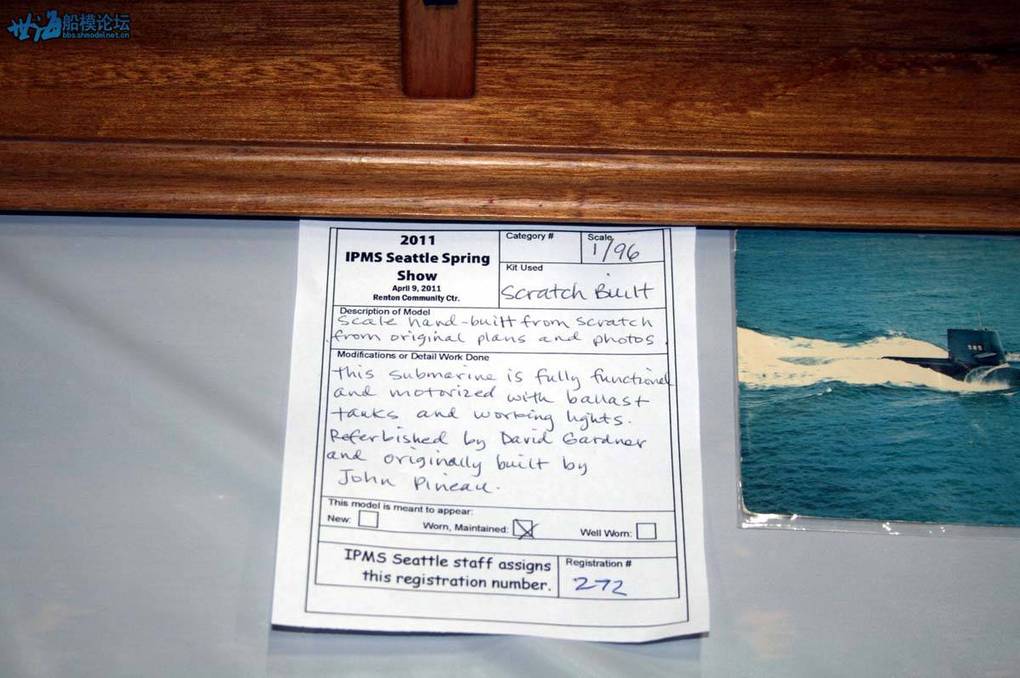 世海船模论坛
bbs.shmodel.net.cn
2011
IPMS Seattle Spring
Show
April 9, 2011
Renton Community Ctr.
Category #
Scale
1/96
Kit Used
Scratch Built
Description of Model
Scale hand-built from scratch
from original plans and photos
Modifications or Detail Work Done
This submarine is fully functional
and motorized with ballast
tanks and working lights.
Referbished by David Gardner
and originally built by
John Pineau.
This model is meant to appear:
New:
Worn, Maintained:
Well Worn:
IPMS Seattle staff assigns
this registration number.
Registration #
272